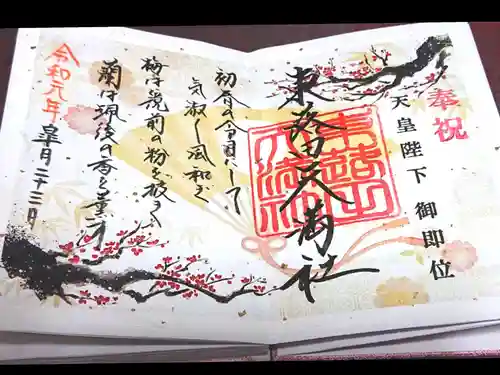 奉祝
天皇陛下 御即位
東蕗田天満社
東蕗田
天満社
初春の令月にして
気淑く風和ぎ
梅は鏡前の粉を披き
蘭は珮後の香を薫す
令和元年
皐月二十三日